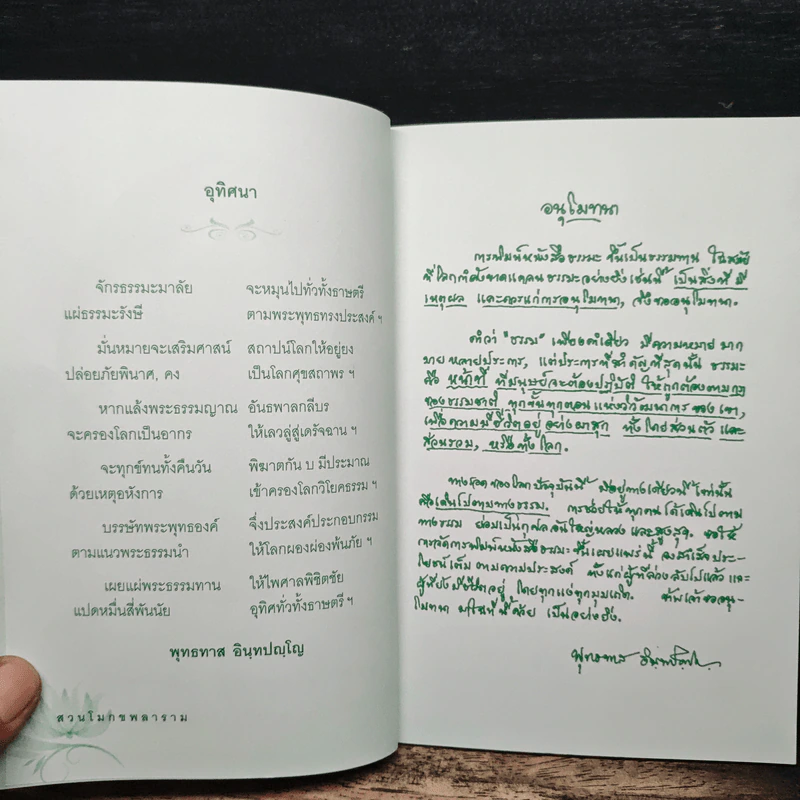 อุทิศนา
จักรธรรมะมาลัย จะหมุนไปทั่วทั้งธาษตรี
แผ่ธรรมะรังษี ตามพระพุทธทรงประสงค์ ฯ
มั่นหมายจะเสริมศาสน์ สถาปน์โลกให้อยู่ยง
ปล่อยภัยพินาศ, คง เป็นโลกศุขสถาพร ฯ
หากแล้งพระธรรมญาณ อันธพาลกลีบร
จะครองโลกเป็นอากร ให้เลวลู่สู่เดรัจฉาน ฯ
จะทุกข์ทนทั้งคืนวัน พิฆาตกัน บ มีประมาณ
ด้วยเหตุอหังการ เข้าครองโลกวิโยคธรรม ฯ
บรรษัทพระพุทธองค์ จึ่งประสงค์ประกอบกรรม
ตามแนวพระธรรมนำ ให้โลกผองผ่องพ้นภัย ฯ
เผยแผ่พระธรรมทาน ให้ไพศาลพิชิตชัย
แปดหมื่นสี่พันนัย อุทิศทั่วทั้งธาษตรี ฯ
พุทธทาส อินฺทปญฺโญ
สวนโมกขพลาราม
อนุโมทนา
การพิมพ์หนังสือธรรมะ ขึ้นเป็นธรรมทาน ในสมัย
ที่โลกกำลังขาดแคลนธรรมะอย่างยิ่งเช่นนี้ เป็นสิ่งที่มี
เหตุผล และควรแก่การอนุโมทนา, จึงขออนุโมทนา.
คำว่า "ธรรม" เพียงคำเดียว มีความหมายมาก
มายหลายประการ, แต่ประการที่สำคัญที่สุดนั้น ธรรมะ
คือ หน้าที่ ที่มนุษย์จะต้องปฏิบัติ ให้ถูกต้องตามกฎ
ของธรรมชาติ ทุกขั้นทุกตอนแห่งวิวัฒนาการ ของเขา,
เพื่อความมีชีวิตอยู่ อย่างผาสุก ทั้งโดยส่วนตัว และ
ส่วนรวม, หรือทั้งโลก.
ทางรอดของโลกปัจจุบันนี้ มีอยู่ทางเดียวนี้ เท่านั้น
คือเดินไปตามทางธรรม. การช่วยให้ทุกคนได้เดินไปตาม
ทางธรรม ย่อมเป็นกุศลอันใหญ่หลวง และสูงสุด. ขอให้
การจัดการพิมพ์หนังสือธรรมะ ขึ้นเผยแพร่นี้ จงสำเร็จประ-
โยชน์เต็มตามความประสงค์ ทั้งแก่ผู้ที่ล่วงลับไปแล้ว และ
ผู้ที่ยังมีชีวิตอยู่ โดยทุกแง่ทุกมุมเถิด. ข้าพเจ้าขออนุ-
โมทนา มาในที่นี้ด้วย เป็นอย่างยิ่ง.
พุทธทาส อินฺทปญฺโญ